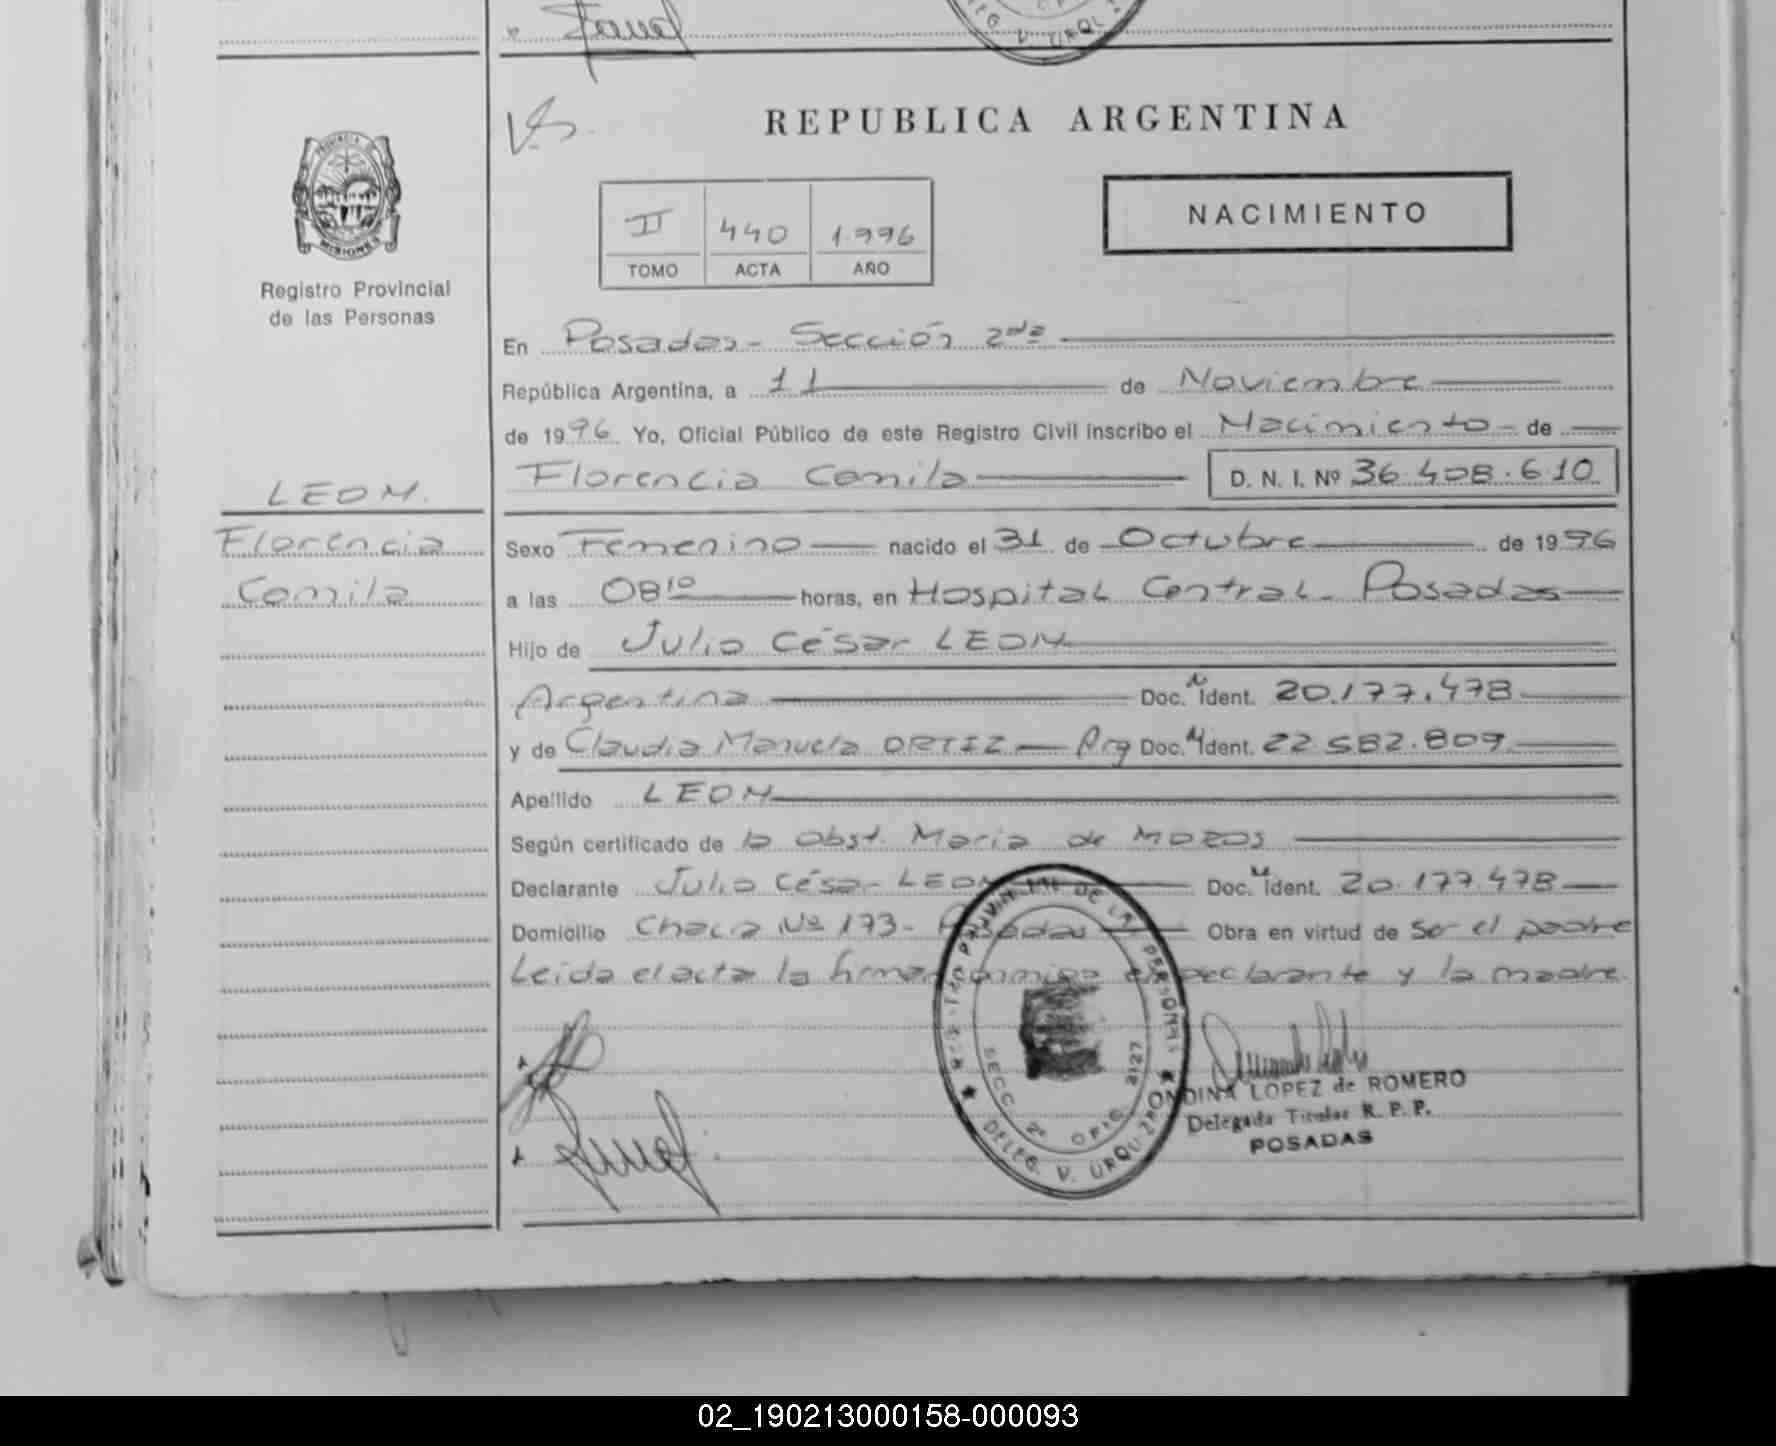 REPUBLICA ARGENTINA
PROVINCIA DE
MISIONES
Registro Provincial
de las Personas
II 440 1.996
TOMO ACTA AÑO
NACIMIENTO
En Posadas - Sección 2da
República Argentina, a 11 de Noviembre
de 1996 Yo, Oficial Público de este Registro Civil inscribo el Nacimiento - de
Florencia Camila D. N. I. Nº 36.408.610
LEON.
Florencia
Camila
Sexo Femenino nacido el 31 de Octubre de 1996
a las 08¹⁰ horas, en Hospital Central - Posadas
Hijo de Julio César LEON
Argentina Doc. N Ident. 20.177.478
y de Claudia Manuela ORTIZ — Arg Doc. N Ident. 22.582.809
Apellido LEON
Según certificado de la Obst. Maria de MOZOS
Declarante Julio César LEON Doc. N Ident. 20.177.478
Domicilio Chacra Nº 173 - Posadas Obra en virtud de ser el padre
Leída el acta la firman conmigo el declarante y la madre.
REGISTRO PROVINCIAL DE LAS PERSONAS
SECC. 2ª OFIC. 2127
DELEG. V. URQUIZA
ONDINA LOPEZ de ROMERO
Delegada Titular R. P. P.
POSADAS
02_190213000158-000093